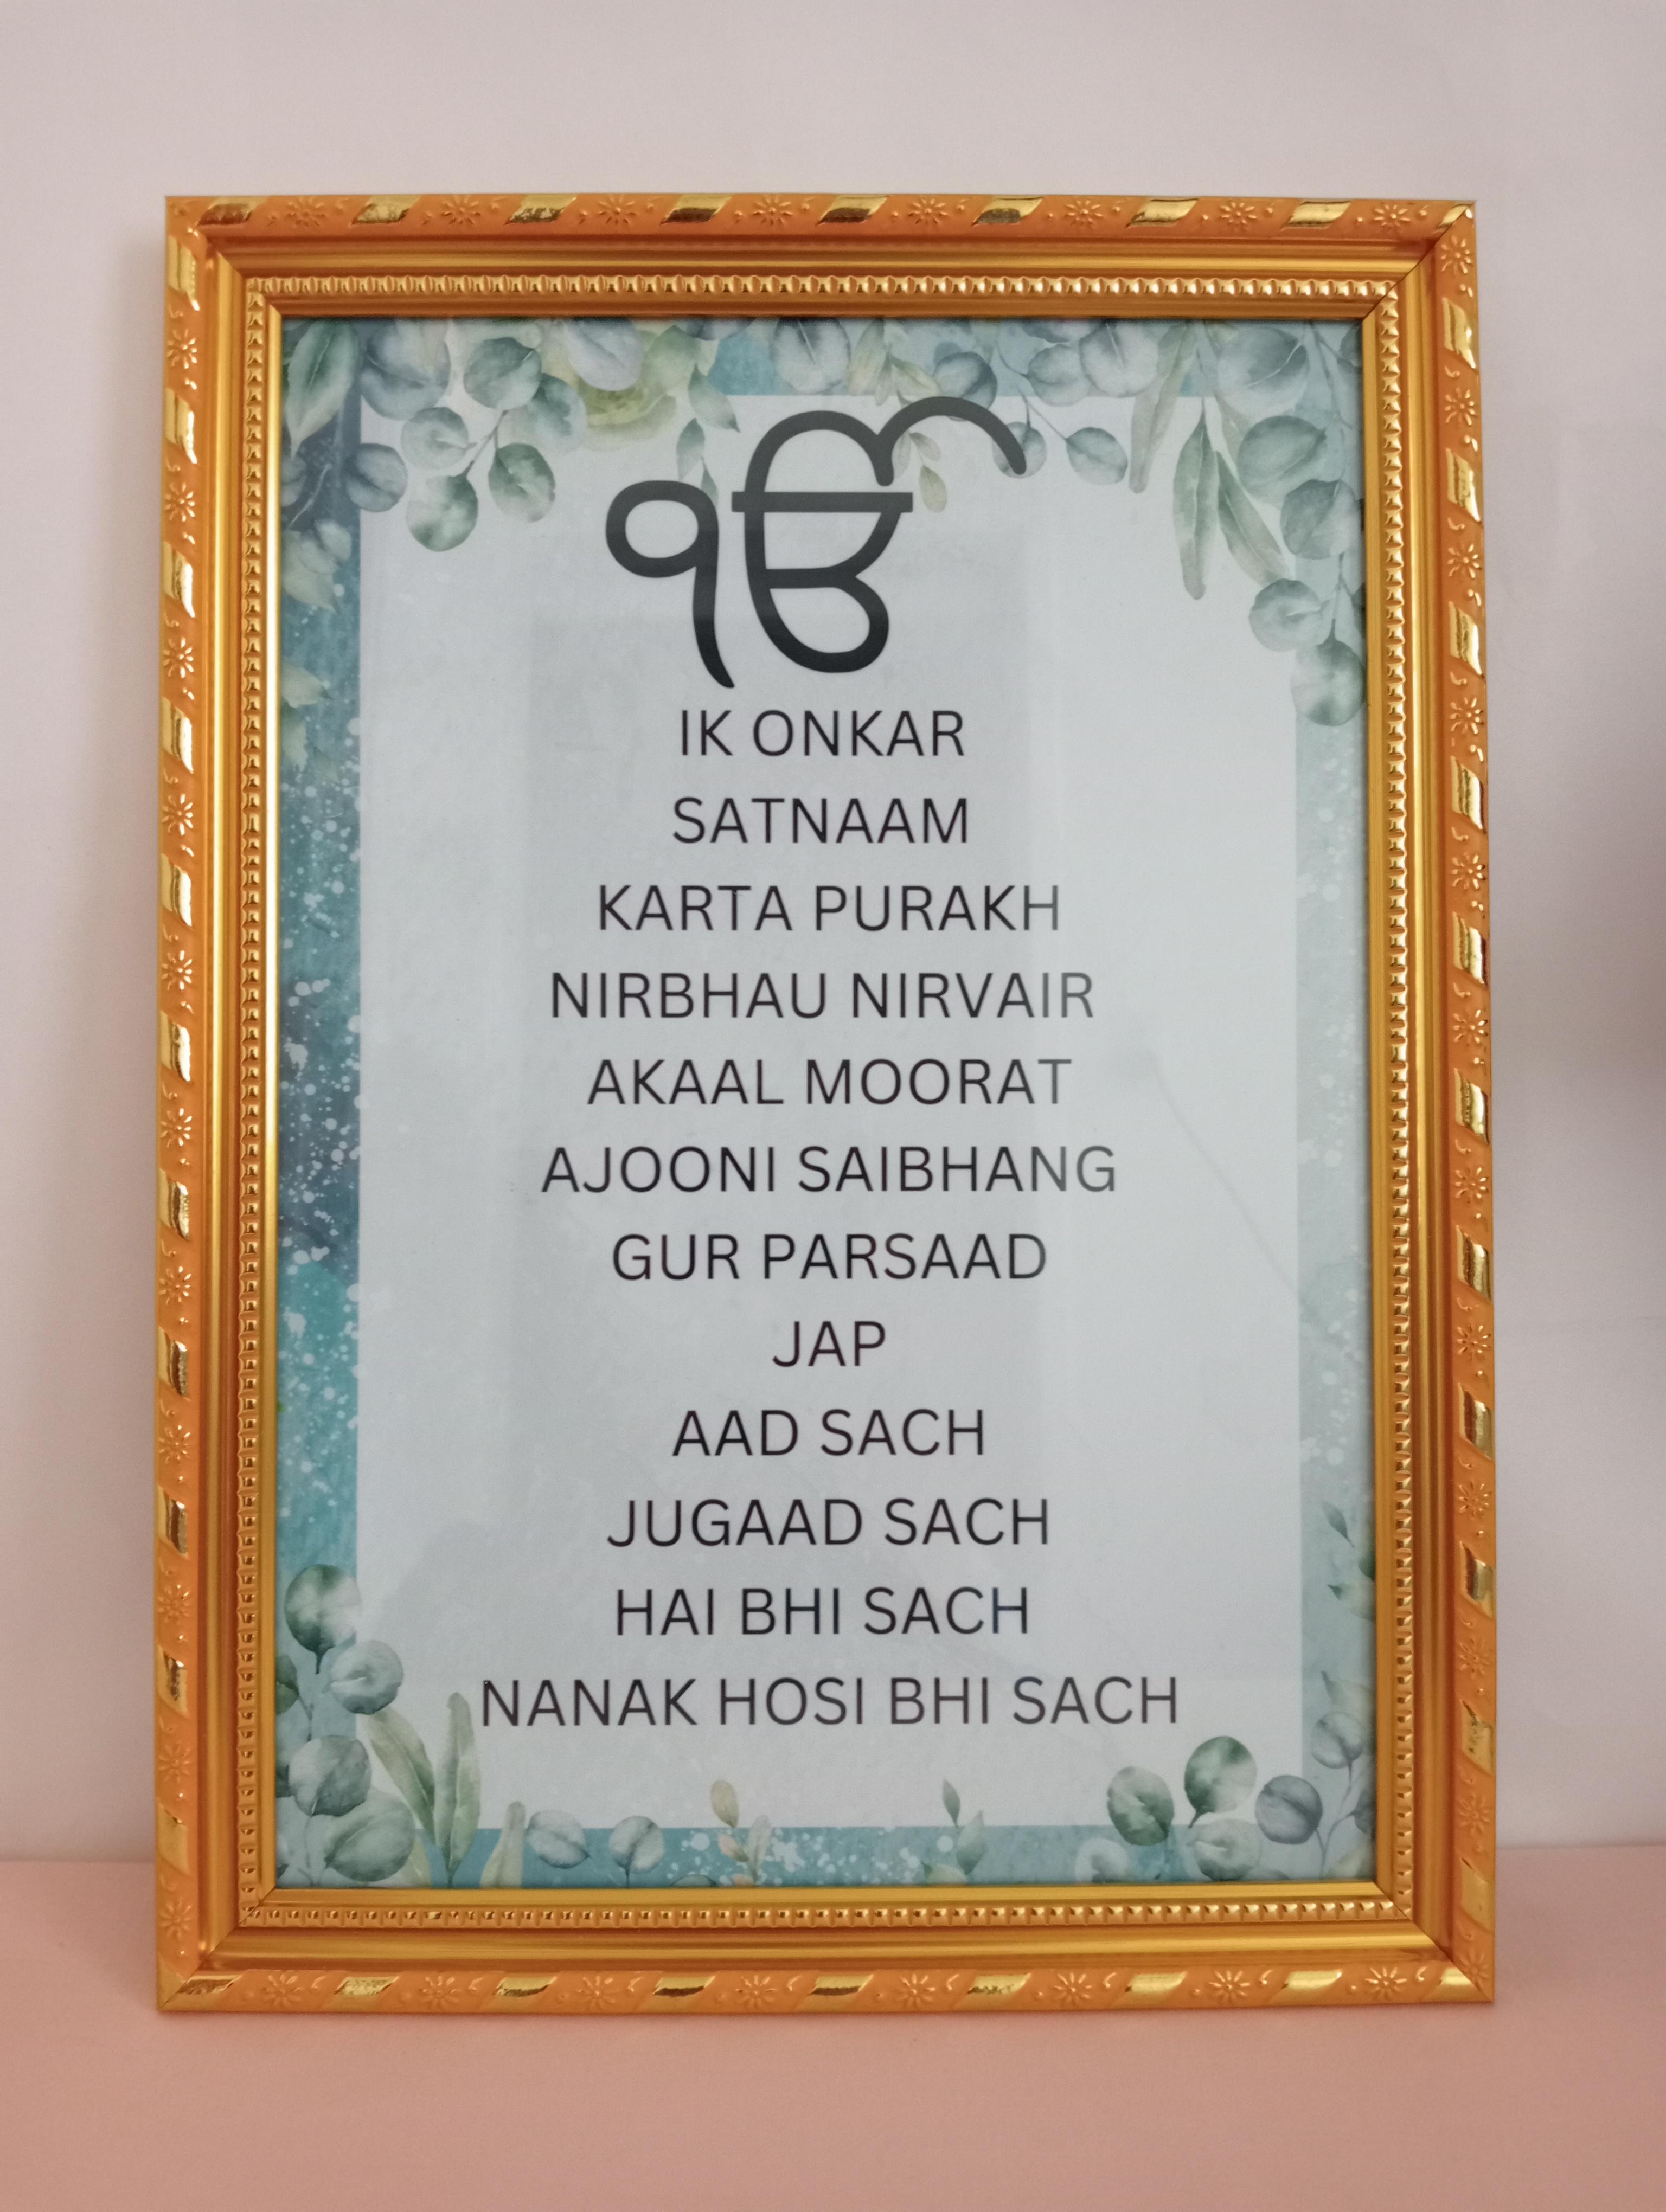 ੴ
IK ONKAR
SATNAAM
KARTA PURAKH
NIRBHAU NIRVAIR
AKAAL MOORAT
AJOONI SAIBHANG
GUR PARSAAD
JAP
AAD SACH
JUGAAD SACH
HAI BHI SACH
NANAK HOSI BHI SACH